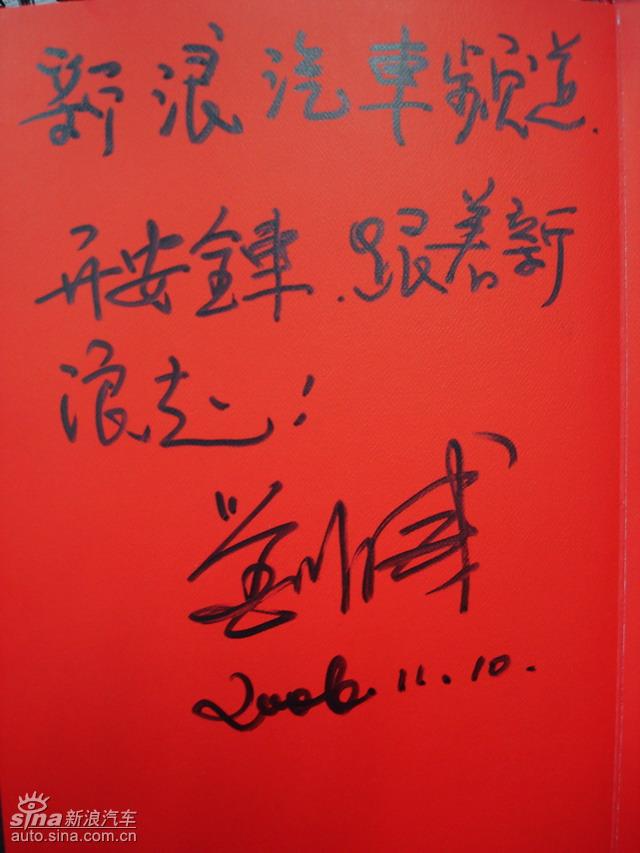 新浪汽車频道.
开安全車.跟着新
浪走!
2006.11.10.
sina新浪汽车
auto.sina.com.cn